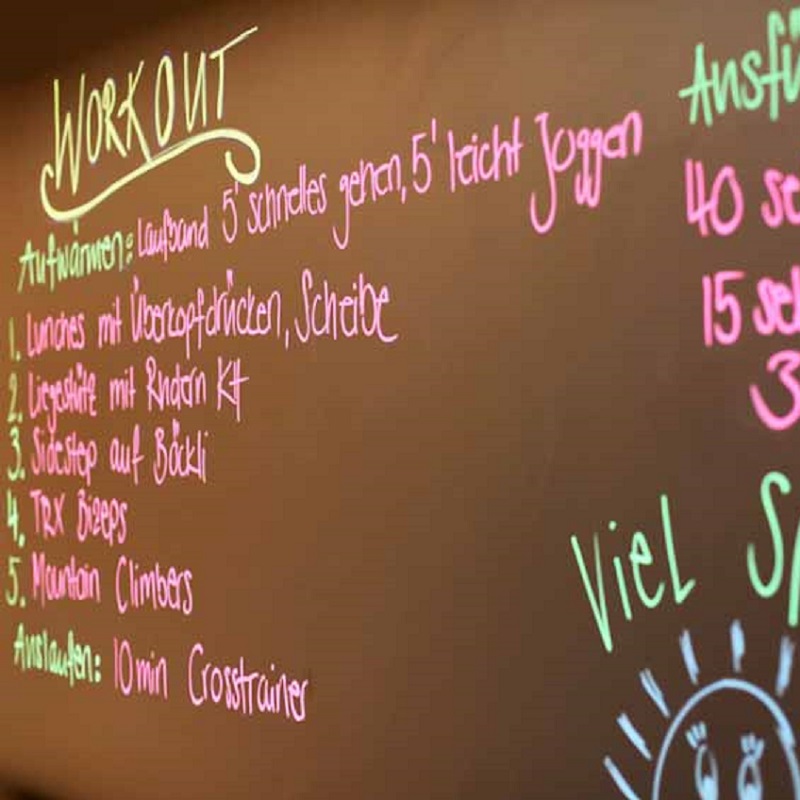 WORKOUT
Aufwärmen: Laufband 5' schnelles gehen, 5' leicht Joggen
1. Lunches mit Überkopfdrücken, Scheibe
2. Liegestütz mit Rudern KH
3. Sidestep auf Böckli
4. TRX Bizeps
5. Mountain Climbers
Auslaufen: 10 min Crosstrainer
Ausfü
40 se
15 sek
3
Viel Sp